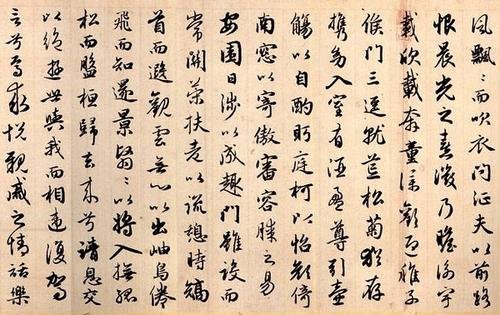 風飄〻而吹衣問征夫以前路
恨晨光之熹微乃瞻衡宇
載欣載奔童僕歡迎稚子
候門三逕就荒松菊猶存
携幼入室有酒盈尊引壺
觴以自酌眄庭柯以怡顔倚
南窓以寄傲審容膝之易
安園日涉以成趣門雖設而
常關策扶老以流憩時矯
首而遐觀雲無心以出岫鳥倦
飛而知還景翳〻以將入撫孤
松而盤桓歸去來兮請息交
以絶游世與我而相違復駕
言兮焉求悦親戚之情話樂